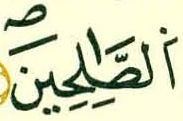 اَ۬لصَّٰلِحِينَۖ